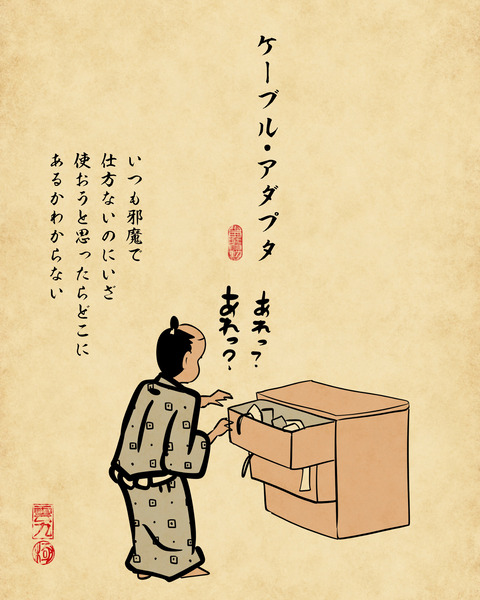 ケーブル・アダプタ
いつも邪魔で
仕方ないのにいざ
使おうと思ったらどこに
あるかわからない
あれっ?
あれっ?